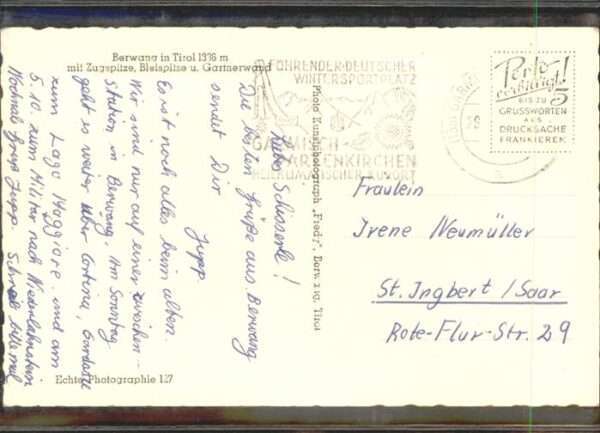 Berwang in Tirol 1336 m
mit Zugspitze, Bleispitze u. Gartnerwand
FÜHRENDER DEUTSCHER
WINTERSPORTPLATZ
GARMISCH-
PARTENKIRCHEN
HEILKLIMATISCHER KURORT
Porto
verbilligt!
BIS ZU
5
GRUSSWORTEN
ALS
DRUCKSACHE
FRANKIEREN
Photo Kunstphotograph „Fredy", Berwang, Tirol
Liebes Schisserle!
Die besten Grüße aus Berwang
sendet Dir
Jupp
Es ist noch alles beim alten.
Wir sind nur auf einer Zwischen-
station in Berwang. Am Sonntag
geht es weiter über Cortina, Gardasee
zum Lago Maggiore und am
5.10. zum Militär nach Niederlahnstein
Nochmals Gruß Jupp. Schreib bitte mal
Fräulein
Irene Neumüller
St. Ingbert / Saar
Rote-Flur-Str. 29
Echte Photographie 127